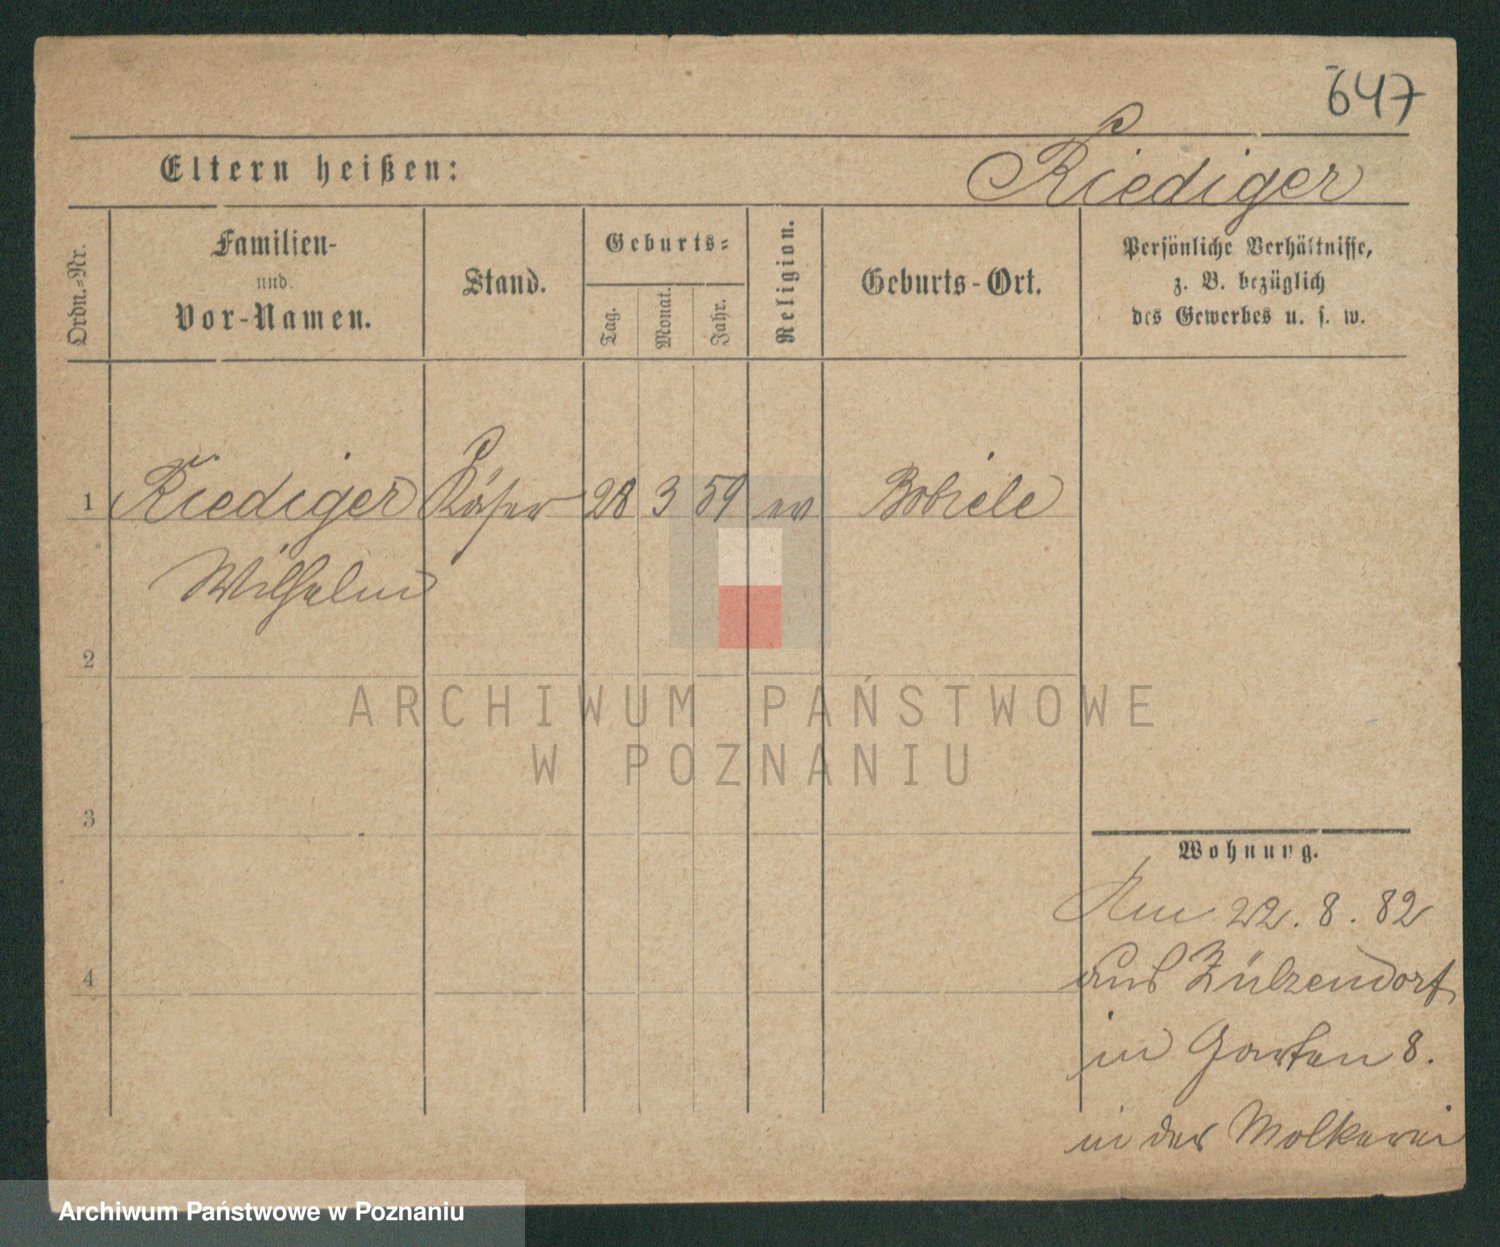 647
Eltern heißen: Riediger
Ordn.-Nr.
Familien-
und
Vor-Namen.
Stand.
Geburts-
Tag.
Monat.
Jahr.
Religion.
Geburts-Ort.
Persönliche Verhältnisse,
z. B. bezüglich
des Gewerbes u. s. w.
1 Riediger Käser 28 3 59 ev Bobiele
Wilhelm
2
ARCHIWUM PAŃSTWOWE
W POZNANIU
3
Wohnung.
Am 22. 8. 82
aus Zülzendorf
4
in Garten 8.
in der Molkerei
Archiwum Państwowe w Poznaniu